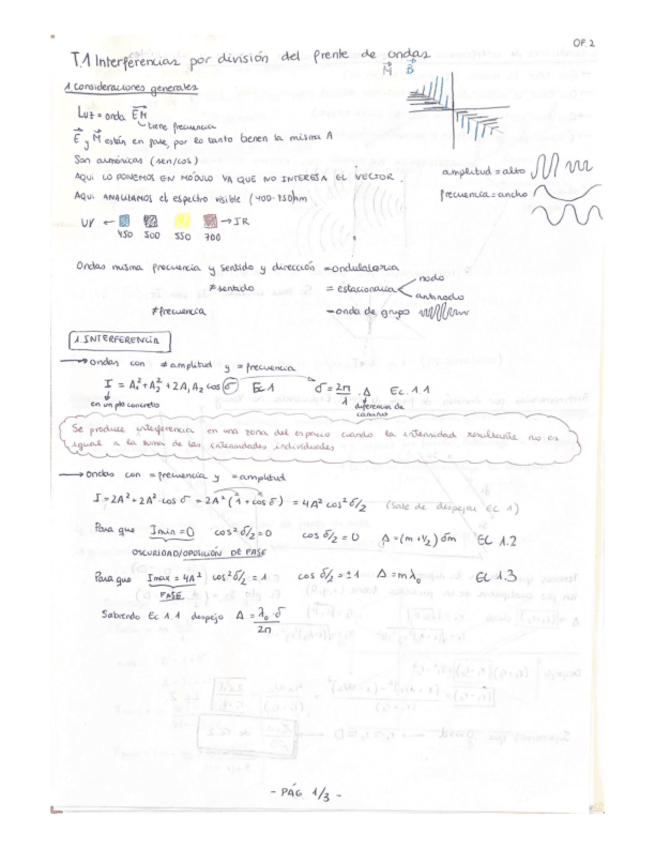 OF. 2
T.1 Interferencias por división del frente de ondas
M B
1. Consideraciones generales
Luz = onda EM
tiene frecuencia
E y M están en fase, por lo tanto tienen la misma A
Son armónicas (sen/cos)
AQUI LO PONEMOS EN MÓDULO YA QUE NO INTERESA EL VECTOR.
amplitud = alto
AQUI ANALIZAMOS el espectro visible (400-750)nm
frecuencia = ancho
UV ← → IR
450 500 550 700
Ondas misma frecuencia y sentido y dirección = ondulatoria
≠ sentido = estacionaria
nodo
antinodo
≠ frecuencia = onda de grupo
1. INTERFERENCIA
→ ondas con ≠ amplitud y = frecuencia
I = A₁² + A₂² + 2A₁A₂ cos σ Ec 1 σ = 2π/λ · Δ Ec. 1.1
en un pto concreto
diferencia de camino
Se produce interferencia en una zona del espacio cuando la intensidad resultante no es
igual a la suma de las intensidades individuales
→ Ondas con = frecuencia y = amplitud
I = 2A² + 2A² cos σ = 2A² (1 + cos δ) = 4A² cos² δ/2 (Sale de despejar EC 1)
Para que Imin = 0 cos² δ/2 = 0 cos δ/2 = 0 Δ = (m + 1/2) σm EC 1.2
OSCURIDAD/OPOSICIÓN DE FASE
Para que Imax = 4A² cos² δ/2 = 1 cos δ/2 = ±1 Δ = mλ₀ EC 1.3
FASE
Sabiendo Ec 1.1 despejo Δ = λ₀ · σ / 2π
- PÁG 1/3 -